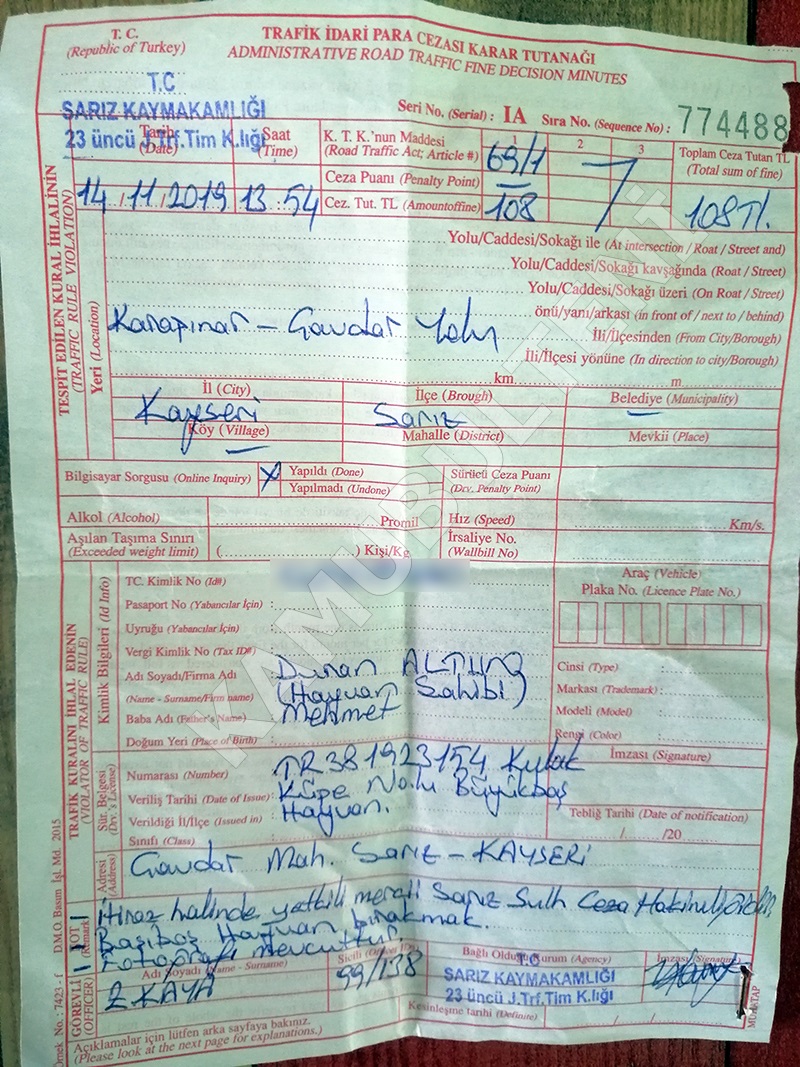 T. C.
(Republic of Turkey)
TRAFİK İDARİ PARA CEZASI KARAR TUTANAĞI
ADMINISTRATIVE ROAD TRAFFIC FINE DECISION MINUTES
T.C
SARIZ KAYMAKAMLIĞI
23 üncü J.Trf.Tim K.lığı
Seri No. (Serial) : IA Sıra No. (Sequence No) : 774488
Tarih (Date)
Saat (Time)
K. T. K.'nun Maddesi (Road Traffic Act; Article #)
1 2 3
69/1
Toplam Ceza Tutarı TL (Total sum of fine)
Ceza Puanı (Penalty Point)
14/11/2019 13:54
Cez. Tut. TL (Amountoffine)
108
108 Tl.
TESPİT EDİLEN KURAL İHLALİNİN
(TRAFFIC RULE VIOLATION)
Yeri (Location)
Yolu/Caddesi/Sokağı ile (At intersection / Roat / Street and)
Yolu/Caddesi/Sokağı kavşağında (Roat / Street)
Yolu/Caddesi/Sokağı üzeri (On Roat / Street)
önü/yanı/arkası (in front of / next to / behind)
Karapınar - Gavdar Yolu
İli/İlçesinden (From City/Borough)
İli/İlçesi yönüne (In direction to city/Borough)
km. m
İl (City)
İlçe (Brough)
Belediye (Municipality)
Kayseri
Sarız
Köy (Village)
Mahalle (District)
Mevkii (Place)
Bilgisayar Sorgusu (Online Inquiry)
X
Yapıldı (Done)
Yapılmadı (Undone)
Sürücü Ceza Puanı
(Drv. Penalty Point)
Alkol (Alcohol) Promil
Hız (Speed) Km/s.
Aşılan Taşıma Sınırı
(Exceeded weight limit) ( ) Kişi/Kg
İrsaliye No.
(Wallbill No)
TRAFİK KURALINI İHLAL EDENİN
(VIOLATOR OF TRAFFIC RULE)
Kimlik Bilgileri (Id Info)
TC. Kimlik No (Id#)
Araç (Vehicle)
Plaka No. (Licence Plate No.)
Pasaport No (Yabancılar İçin) :
Uyruğu (Yabancılar İçin) :
Vergi Kimlik No (Tax ID#)
Adı Soyadı/Firma Adı
(Name - Surname/Firm name)
Duran ALTUNO
(Hayvan Sahibi)
Baba Adı (Father's Name) : Mehmet
Doğum Yeri (Place of Birth) :
Cinsi (Type) :
Markası (Trademark) :
Modeli (Model)
Rengi (Color) :
İmzası (Signature)
Sür. Belgesi
(Drv.'s License)
Numarası (Number) : TR381923154 Kulak
Veriliş Tarihi (Date of Issue) : Küpe No.lu Büyükbaş
Verildiği İl/İlçe (Issued in) : Hayvan.
Sınıfı (Class) :
Tebliğ Tarihi (Date of notification)
/ /20
Adresi
(Address)
Gavdar Mah. Sarız - KAYSERİ
NOT
(Remark)
İtiraz halinde yetkili merci Sarız Sulh Ceza Hakimliğidir.
Başıboş Hayvan bırakmak.
Fotoğrafı mevcuttur.
GÖREVLİ
(OFFICER)
Adı Soyadı (Name - Surname)
Z KAYA
Sicili
99/138
Bağlı Olduğu Kurum (Agency)
T.C
SARIZ KAYMAKAMLIĞI
23 üncü J.Trf.Tim K.lığı
İmzası (Signature)
Kesinleşme tarihi (Definite) / /
Açıklamalar için lütfen arka sayfaya bakınız.
(Please look at the next page for explanations.)
Örnek No. : 7423 - f D.M.O. Basım İşl. Md. 2015
KAMUBÜLTENİ